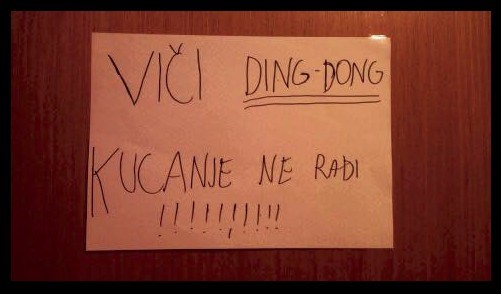 VIČI DING-DONG
KUCANJE NE RADI
!!!!!!!!!!